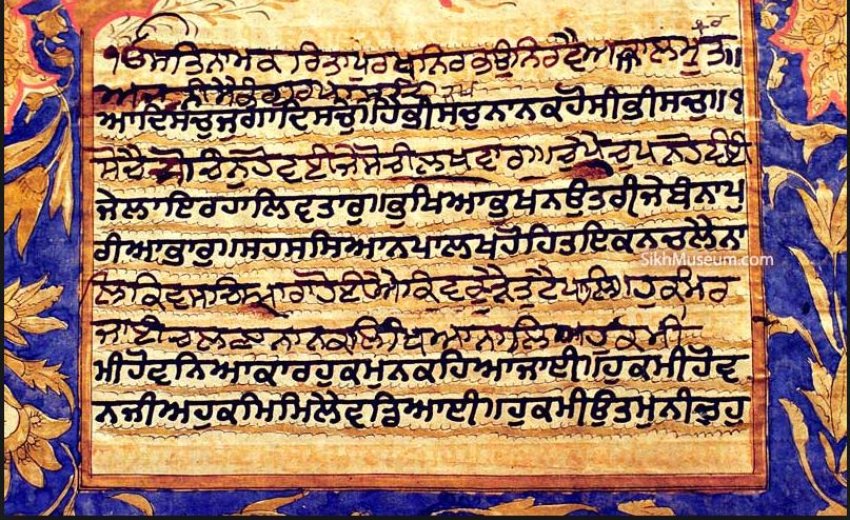 ੧ਓਸਤਿਨਾਮਕ ਰਿਤਾਪੁਰਖਨਿਰਭਉਨਿਰਵੈਅਕਾਲਮੂਤ॥
ਆਦਿਸਚੁਜੁਗਾਦਿਸਚੁ॥ਹੈਭੀਸਚੁਨਾਨਕਹੋਸੀਭੀਸਚੁ॥੧
ਸੋਚੈਸੋਚਿਨਹੋਵਈਜੇਸੋਚੀਲਖਵਾਰ॥ਚੁਪੈਚੁਪਨਹੋਵਈ
ਜੇਲਾਇਰਹਾਲਿਵਤਾਰੁ॥ਭੁਖਿਆਭੁਖਨਉਤਰੀਜੇਬੰਨਾਪੁ
ਰੀਆਭਾਰੁ॥ਸਹਸਸਿਆਨਪਾਲਖਹੋਹਿਤਇਕਨਚਲੈਨਾ
SikhMuseum.com
ਲਿਕਿਵਸਚਿਆਰਾਹੋਈਐਕਿਵਕੂੜੈਤੁਟੈਪਾਲਿ॥ਹੁਕਮਿਰ
ਜਾਈਚਲਣਾਨਾਨਕਲਿਖਿਆਨਾਲਿਅਹੁਕਮੀ
ਮੀਹੋਵਨਿਆਕਾਰਹੁਕਮੁਨਕਹਿਆਜਾਈ॥ਹੁਕਮੀਹੋਵ
ਨਜੀਅਹੁਕਮਿਮਿਲੈਵਡਿਆਈ॥ਹੁਕਮੀਉਤਮੁਨੀਚੁਹੁ